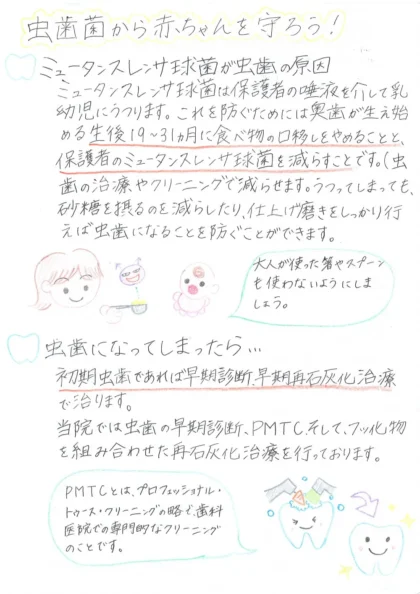 虫歯菌から赤ちゃんを守ろう!
ミュータンスレンサ球菌が虫歯の原因
ミュータンスレンサ球菌は保護者の唾液を介して乳
幼児にうつります。これを防ぐためには奥歯が生え始
める生後19~31ヵ月に食べ物の口移しをやめることと、
保護者のミュータンスレンサ球菌を減らすことです。(虫
歯の治療やクリーニングで減らせます。うつってしまっても、
砂糖を摂るのを減らしたり、仕上げ磨きをしっかり行
えば虫歯になることを防ぐことができます。
大人が使った箸やスプーン
も使わないようにしま
しょう。
虫歯になってしまったら…
初期虫歯であれば早期診断、早期再石灰化治療
で治ります。
当院では虫歯の早期診断、PMTC、そして、フッ化物
を組み合わせた再石灰化治療を行っております。
PMTCとは、プロフェッショナル・
トゥース・クリーニングの略で、歯科
医院での専門的なクリーニング
のことです。